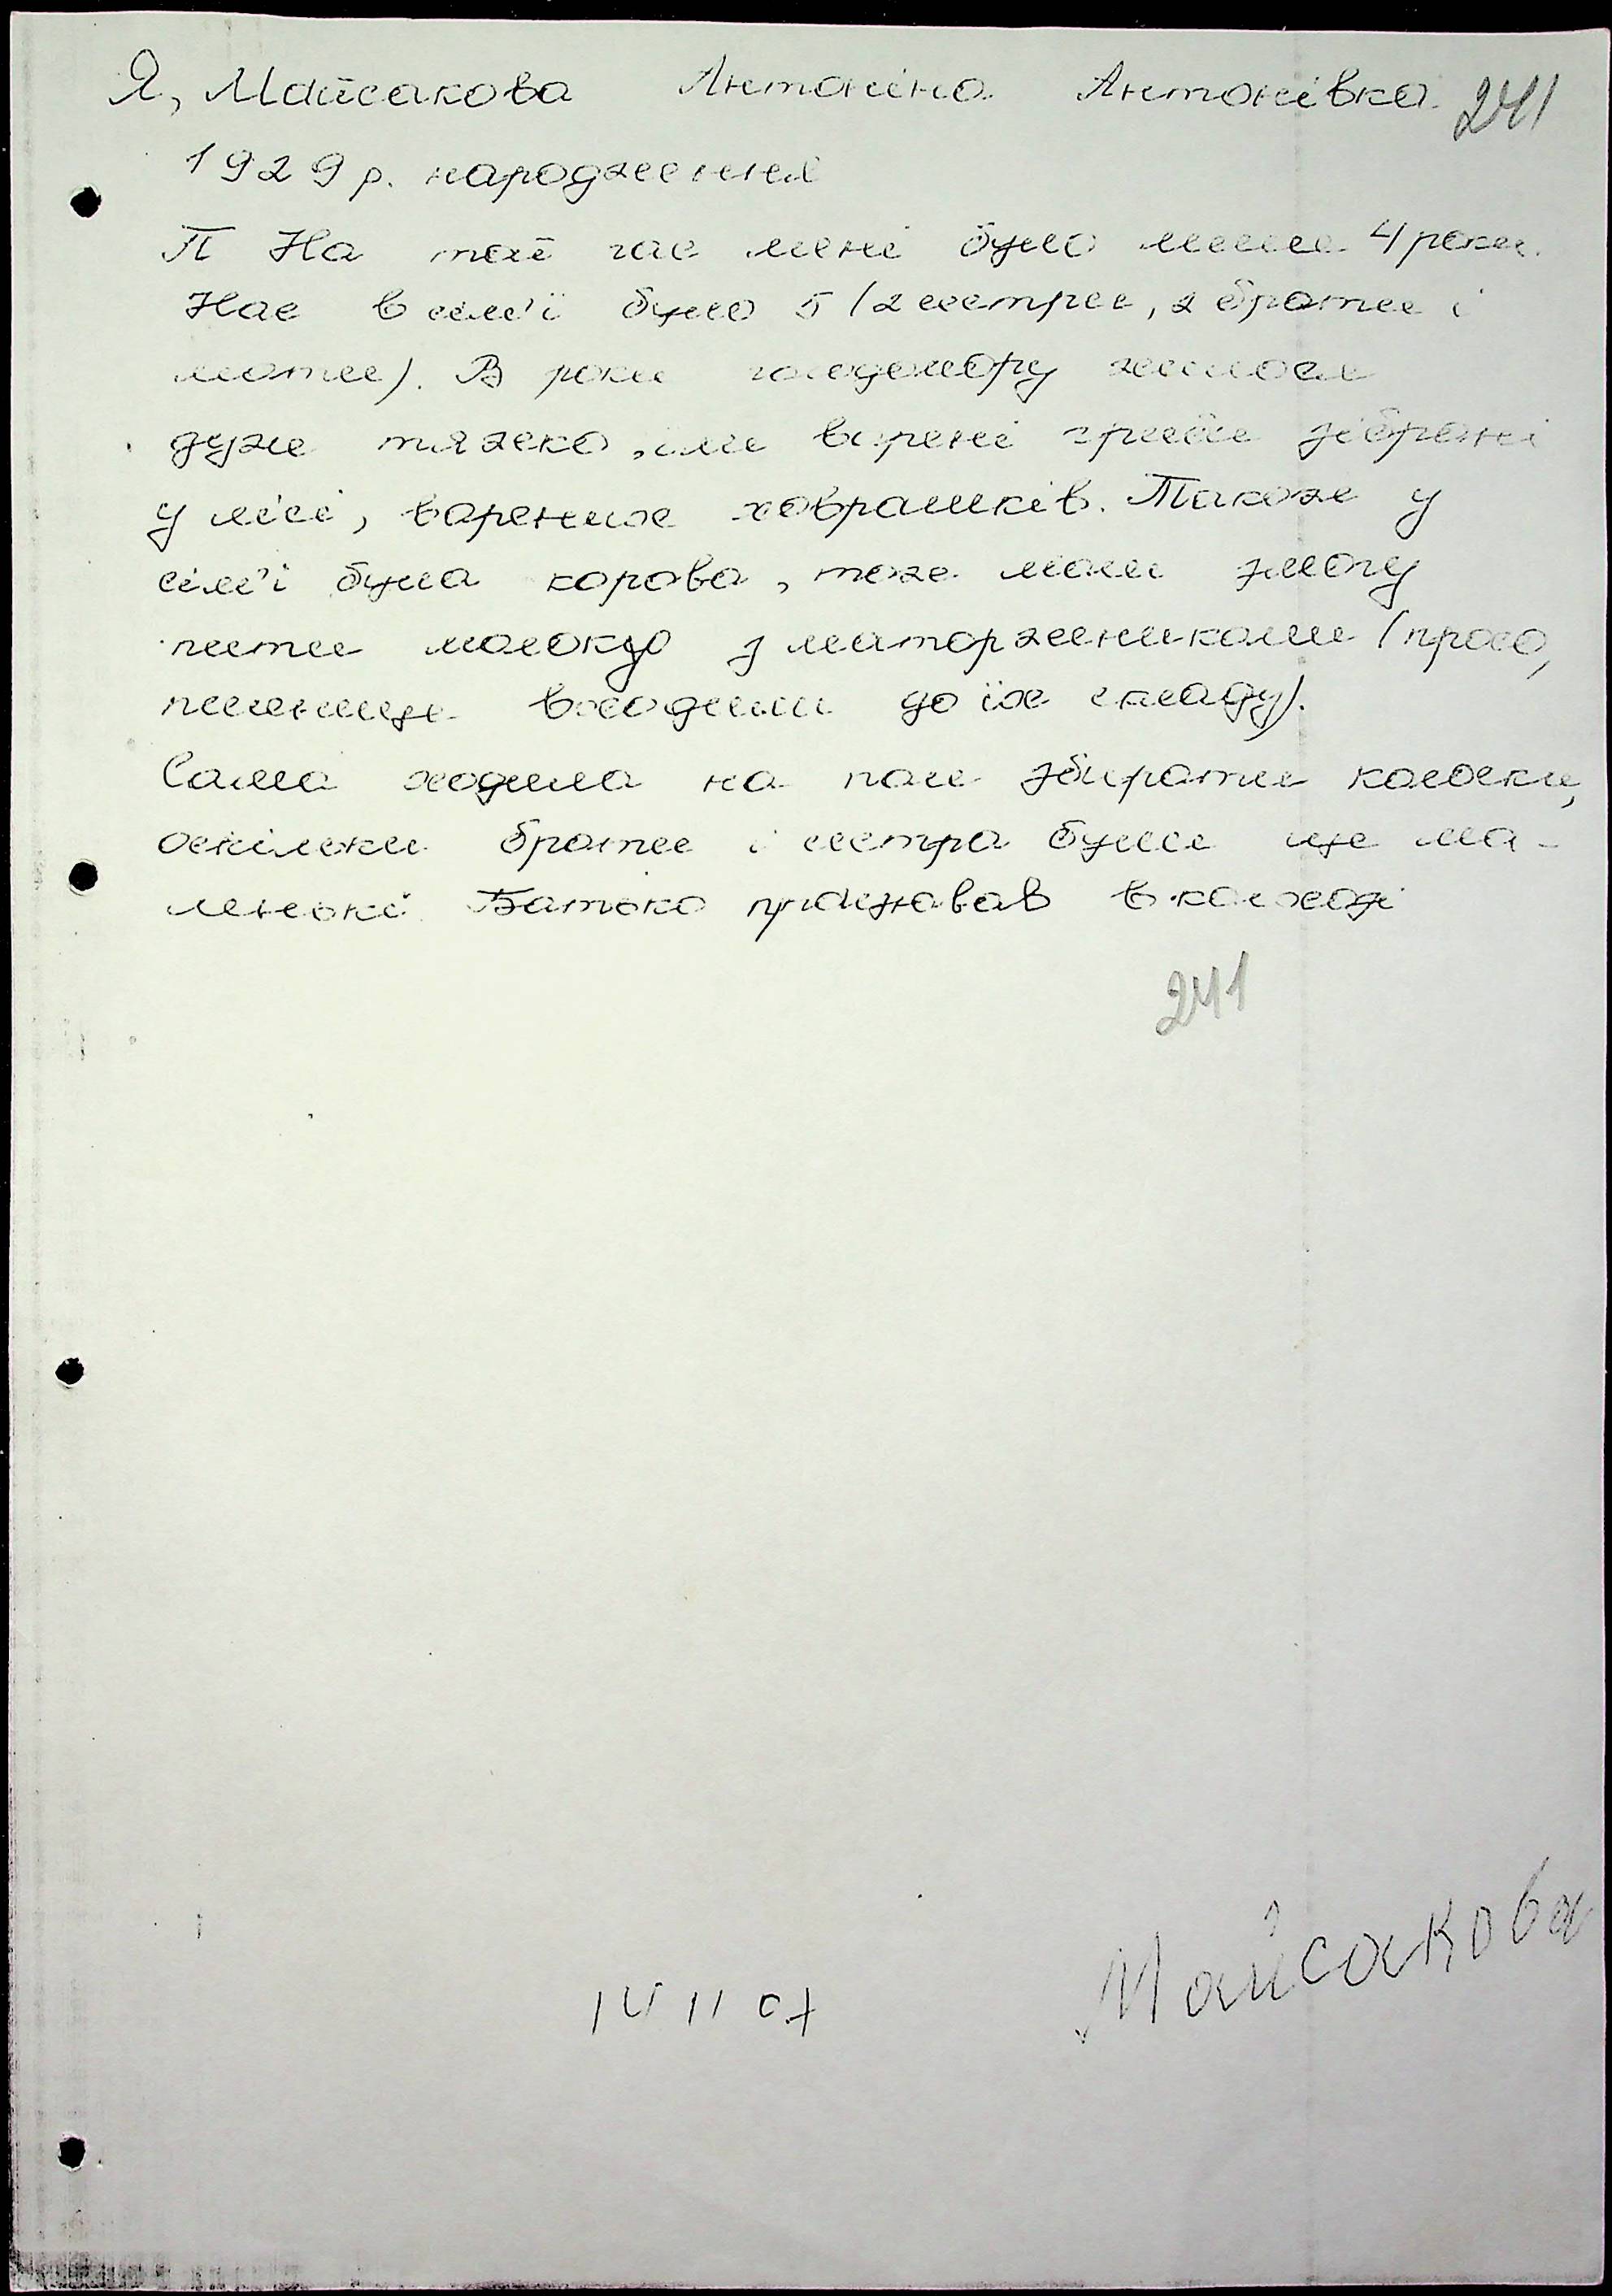 Я, Майсакова Антоніна Антонівна 241
1929 р. народження
П На той час мені було лише 4 роки.
Нас в сім'ї було 5 (2 сестри, 2 брати і
мати). В роки голодомору жилося
дуже тяжко, їли варені гриби зібрані
у лісі, варених ховрашків. Також у
сім'ї була корова, тож мали змогу
пити молоко з маторженниками (просо,
пшениця входили до їх складу).
Сама ходила на поле збирати колоски,
оскільки брати і сестра були ще ма-
ленькі. Батько працював в колхозі
241
14 11 07
Майсакова